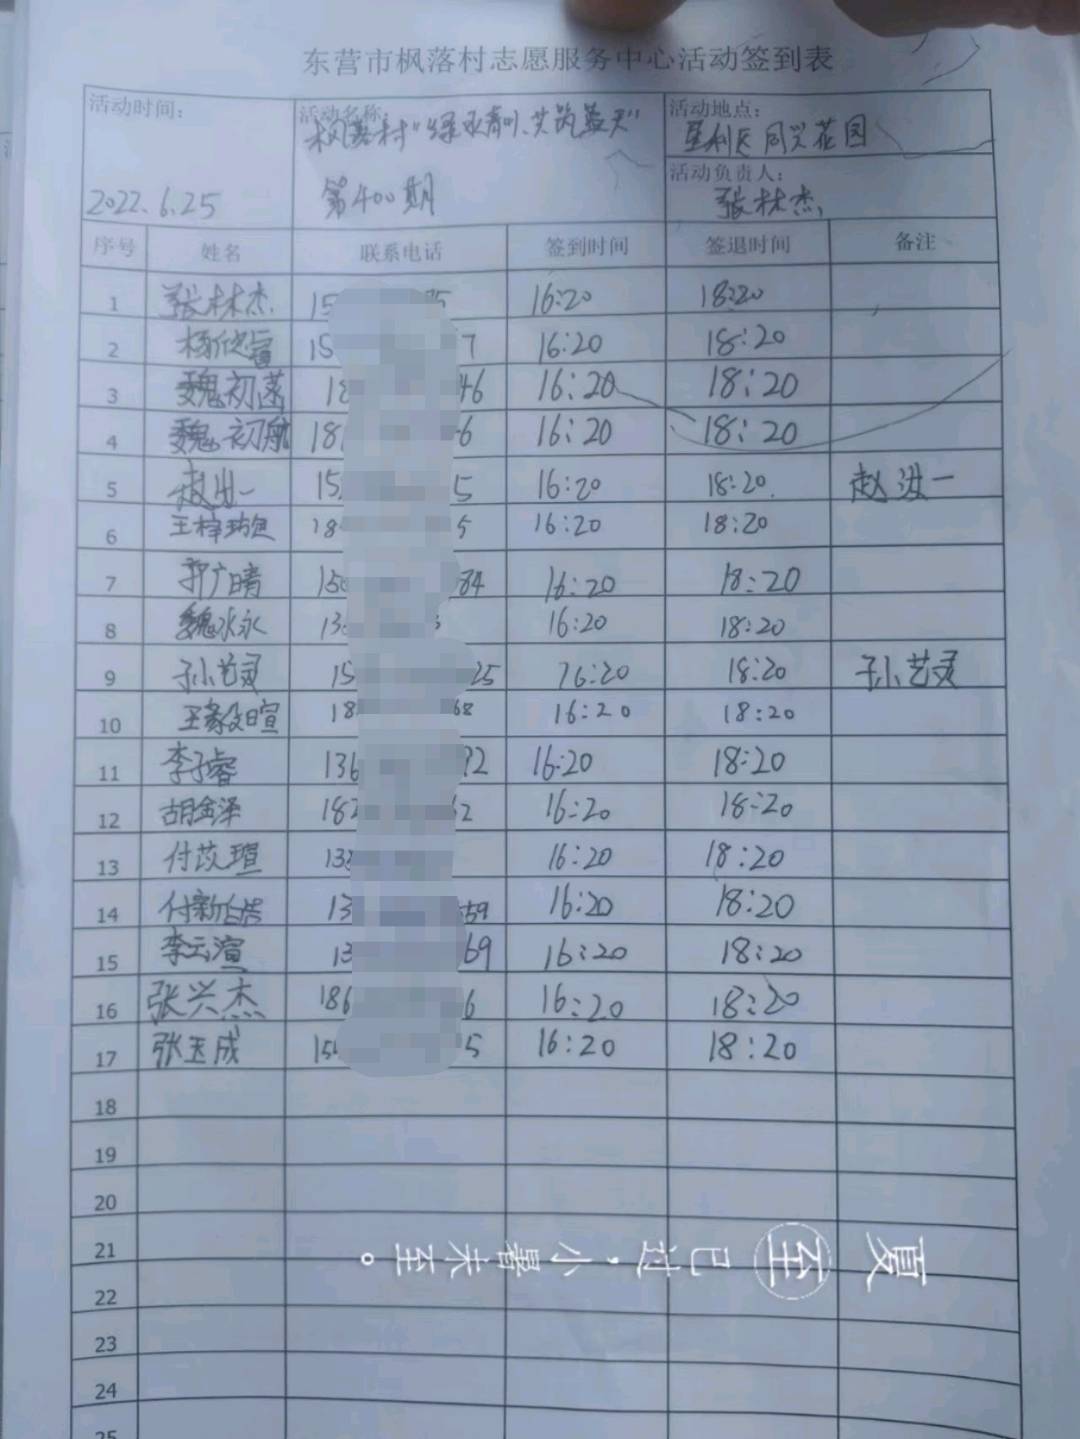 东营市枫落村志愿服务中心活动签到表
活动时间: 活动名称: 活动地点:
枫落村"绿水青山、共筑蓝天" 垦利区同兴花园
活动负责人:
2022.6.25 第400期 张林杰
序号 姓名 联系电话 签到时间 签退时间 备注
1 张林杰 15 75 16:20 18:20
2 杨欣 15 7 16:20 18:20
3 魏初菡 18 46 16:20 18:20
4 魏初航 181 6 16:20 18:20
5 赵洪一 15 5 16:20 18:20 赵洪一
6 王梓 18 5 16:20 18:20
7 郭广晴 150 84 16:20 18:20
8 魏水永 13 16:20 18:20
9 孙艺灵 15 25 16:20 18:20 孙艺灵
10 王毅暄 18 68 16:20 18:20
11 李子睿 136 92 16:20 18:20
12 胡金泽 182 2 16:20 18:20
13 付苡瑄 133 16:20 18:20
14 付新皓 13 59 16:20 18:20
15 李云渲 13 69 16:20 18:20
16 张兴杰 186 6 16:20 18:20
17 张玉成 15 5 16:20 18:20
18
19
20
21
22
23
24
25
夏至已过，小暑未至。